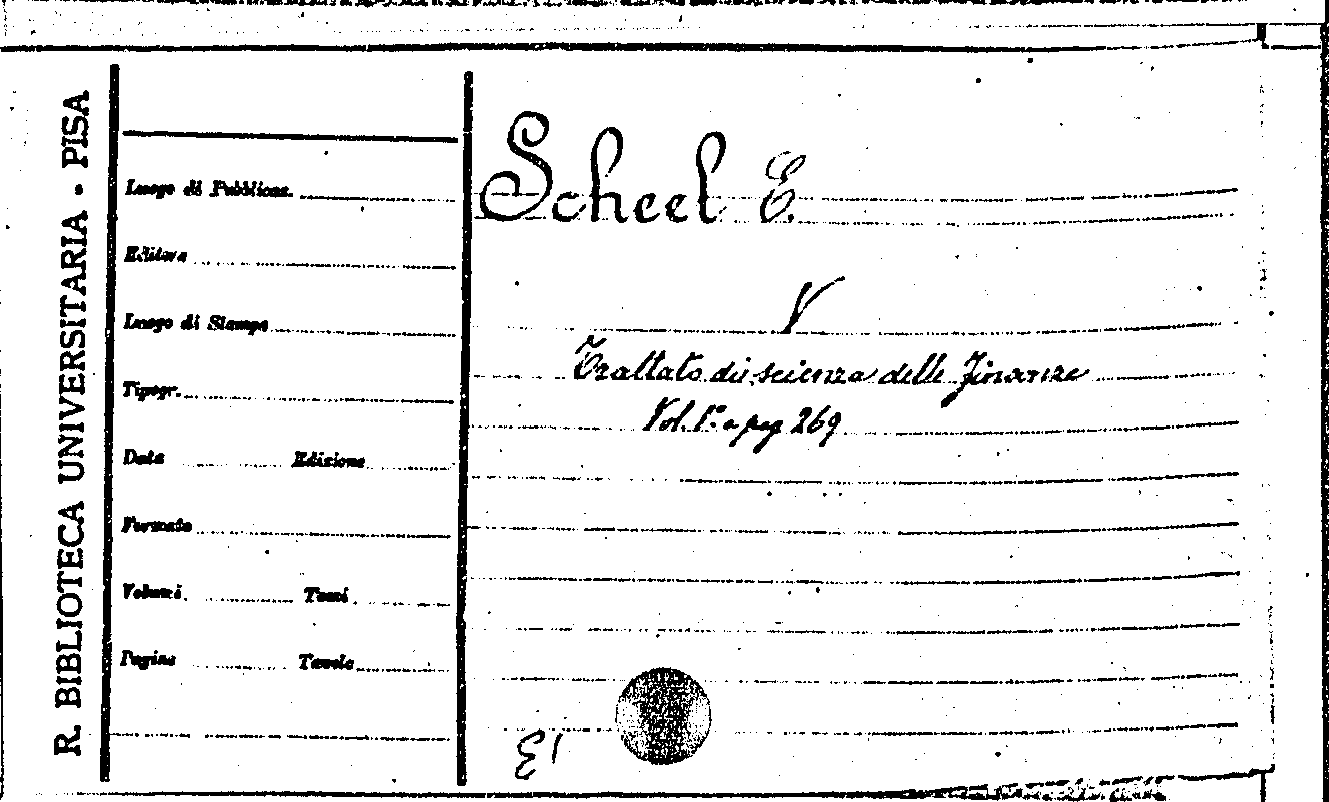 R. BIBLIOTECA UNIVERSITARIA - PISA
Luogo di Pubblicaz.
Editore
Luogo di Stampa
Tipogr.
Data Edizione
Formato
Volumi Tomi
Pagine Tavole
Scheel E.
V
Trattato di scienza delle Finanze
Vol. 1.° a pag 269